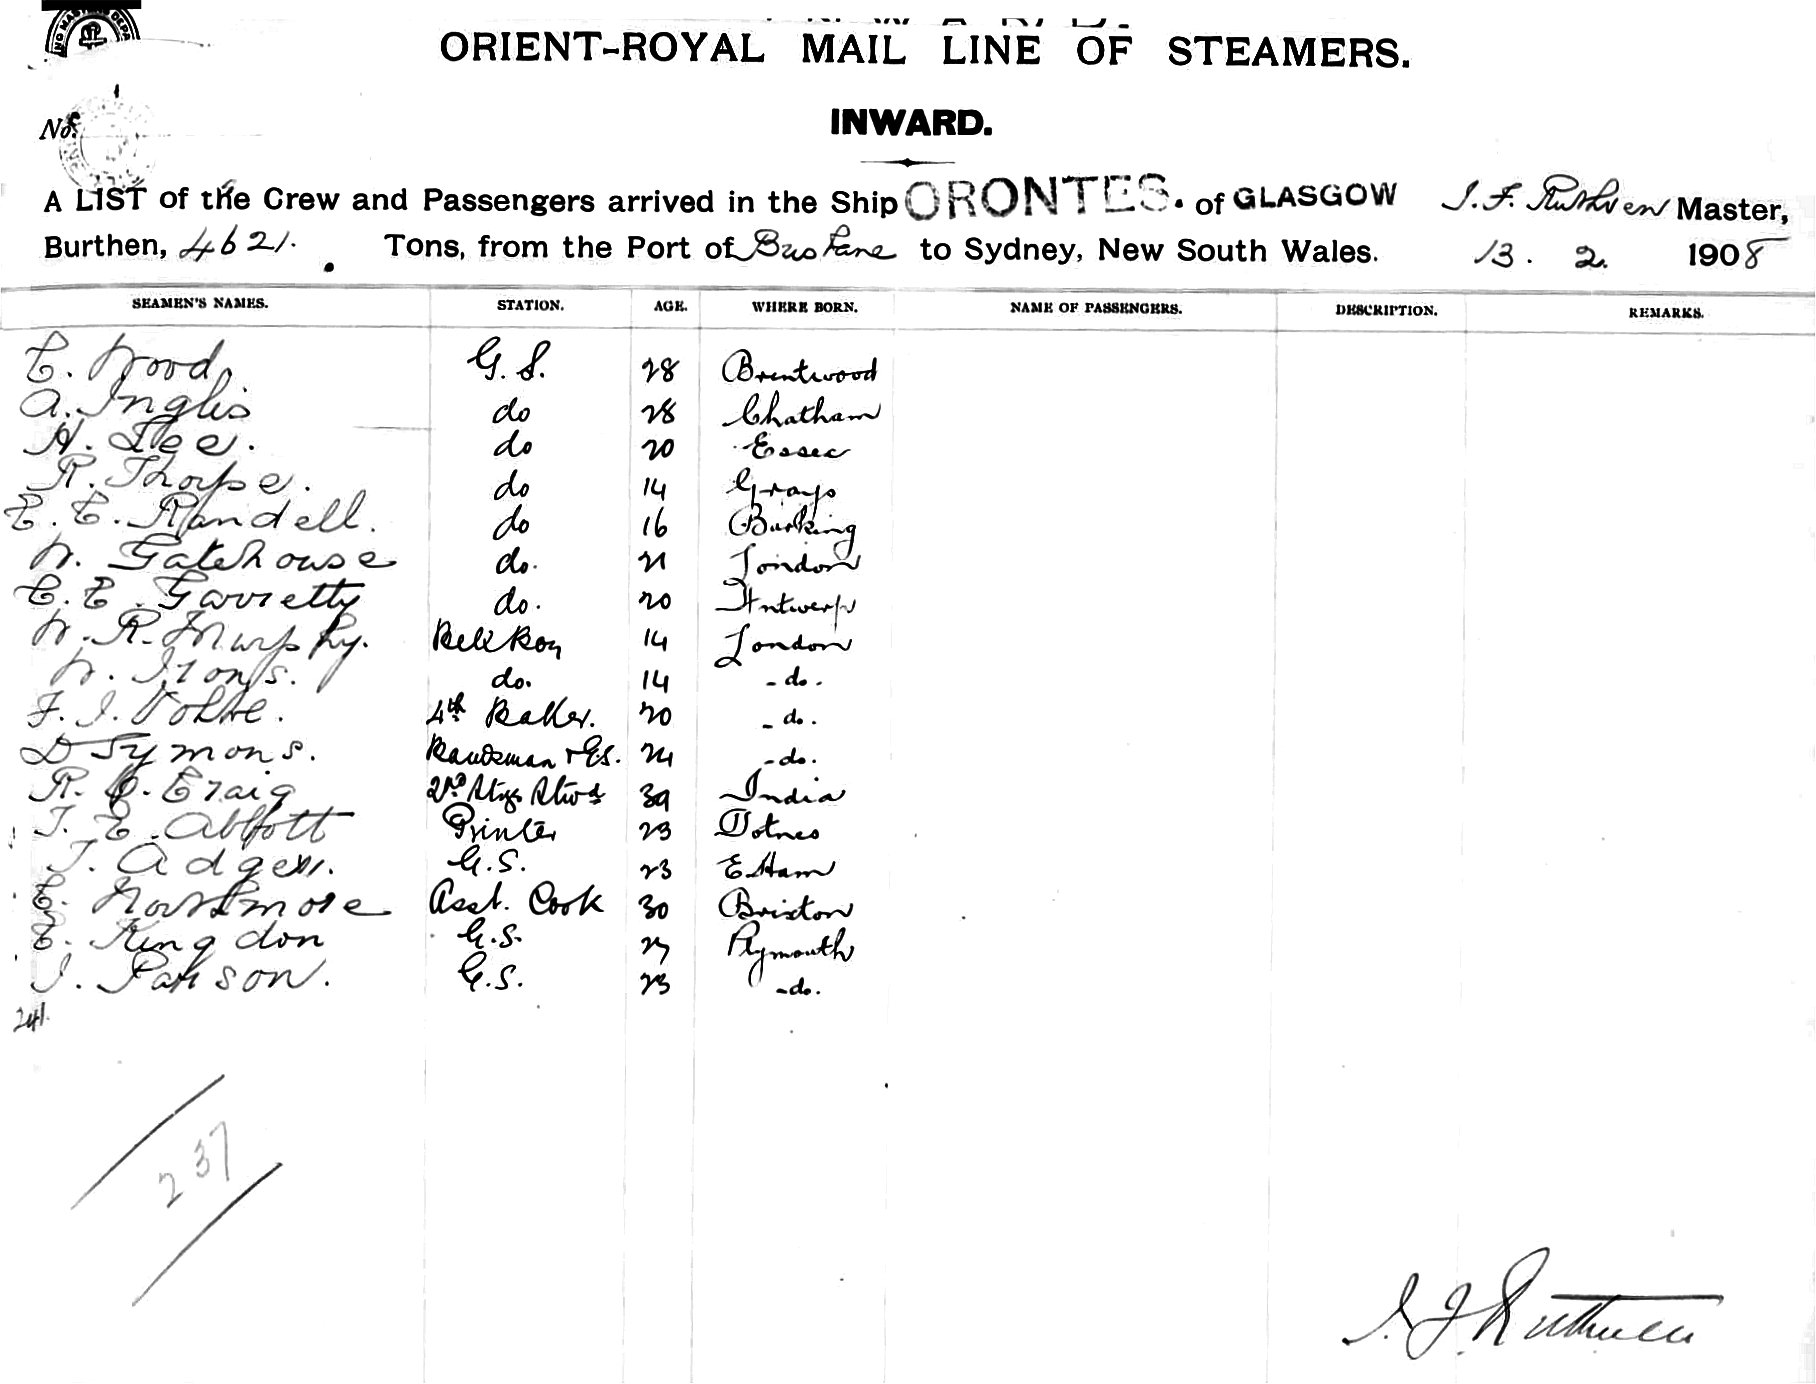 ORIENT-ROYAL MAIL LINE OF STEAMERS.
INWARD.
No.
A LIST of the Crew and Passengers arrived in the Ship ORONTES. of GLASGOW J. F. Ruthven Master,
Burthen, 4621. Tons, from the Port of Brisbane to Sydney, New South Wales. 13. 2. 1908
SEAMEN'S NAMES. STATION. AGE. WHERE BORN. NAME OF PASSENGERS. DESCRIPTION. REMARKS.
C. Wood. G. S. 28 Brentwood
A. Inglis do 28 Chatham
H. Lee. do 20 Essec
R. Thorpe. do 14 Grays
E. E. Randell. do 16 Barking
W. Gatehouse do. 21 London
C. E. Garretty do. 20 Antwerp
W. R. Murphy. Bell Boy 14 London
W. Irons. do. 14 - do.
F. J. 4th Baker. 20 - do.
D Symons. Bandsman + G.S. 24 - do.
R. C. Craig 2nd Stge Stwd 39 India
T. E. Abbott Printer 23 Totnes
T. G.S. 23 E. Ham
C. Asst. Cook 30 Brixton
E. Kingdon G.S. 27 Plymouth
J. G.S. 23 - do.
241.
237
J F Ruthven